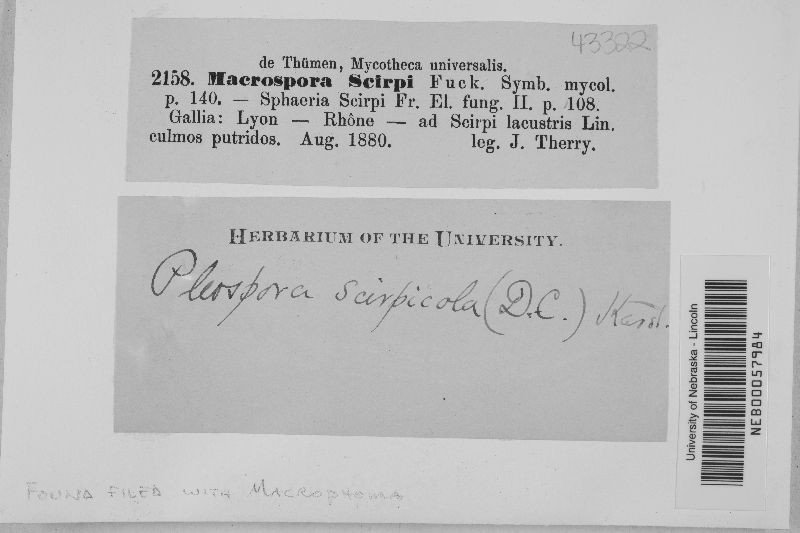 43322
de Thümen, Mycotheca universalis.
2158. Macrospora Scirpi Fuck. Symb. mycol.
p. 140. — Sphaeria Scirpi Fr. El. fung. II. p. 108.
Gallia: Lyon — Rhône — ad Scirpi lacustris Lin.
culmos putridos. Aug. 1880. leg. J. Therry.
HERBARIUM OF THE UNIVERSITY.
Pleospora scirpicola (D.C.) Karst.
FOUND FILED WITH MACROPHOMA
University of Nebraska - Lincoln
NEB00057984